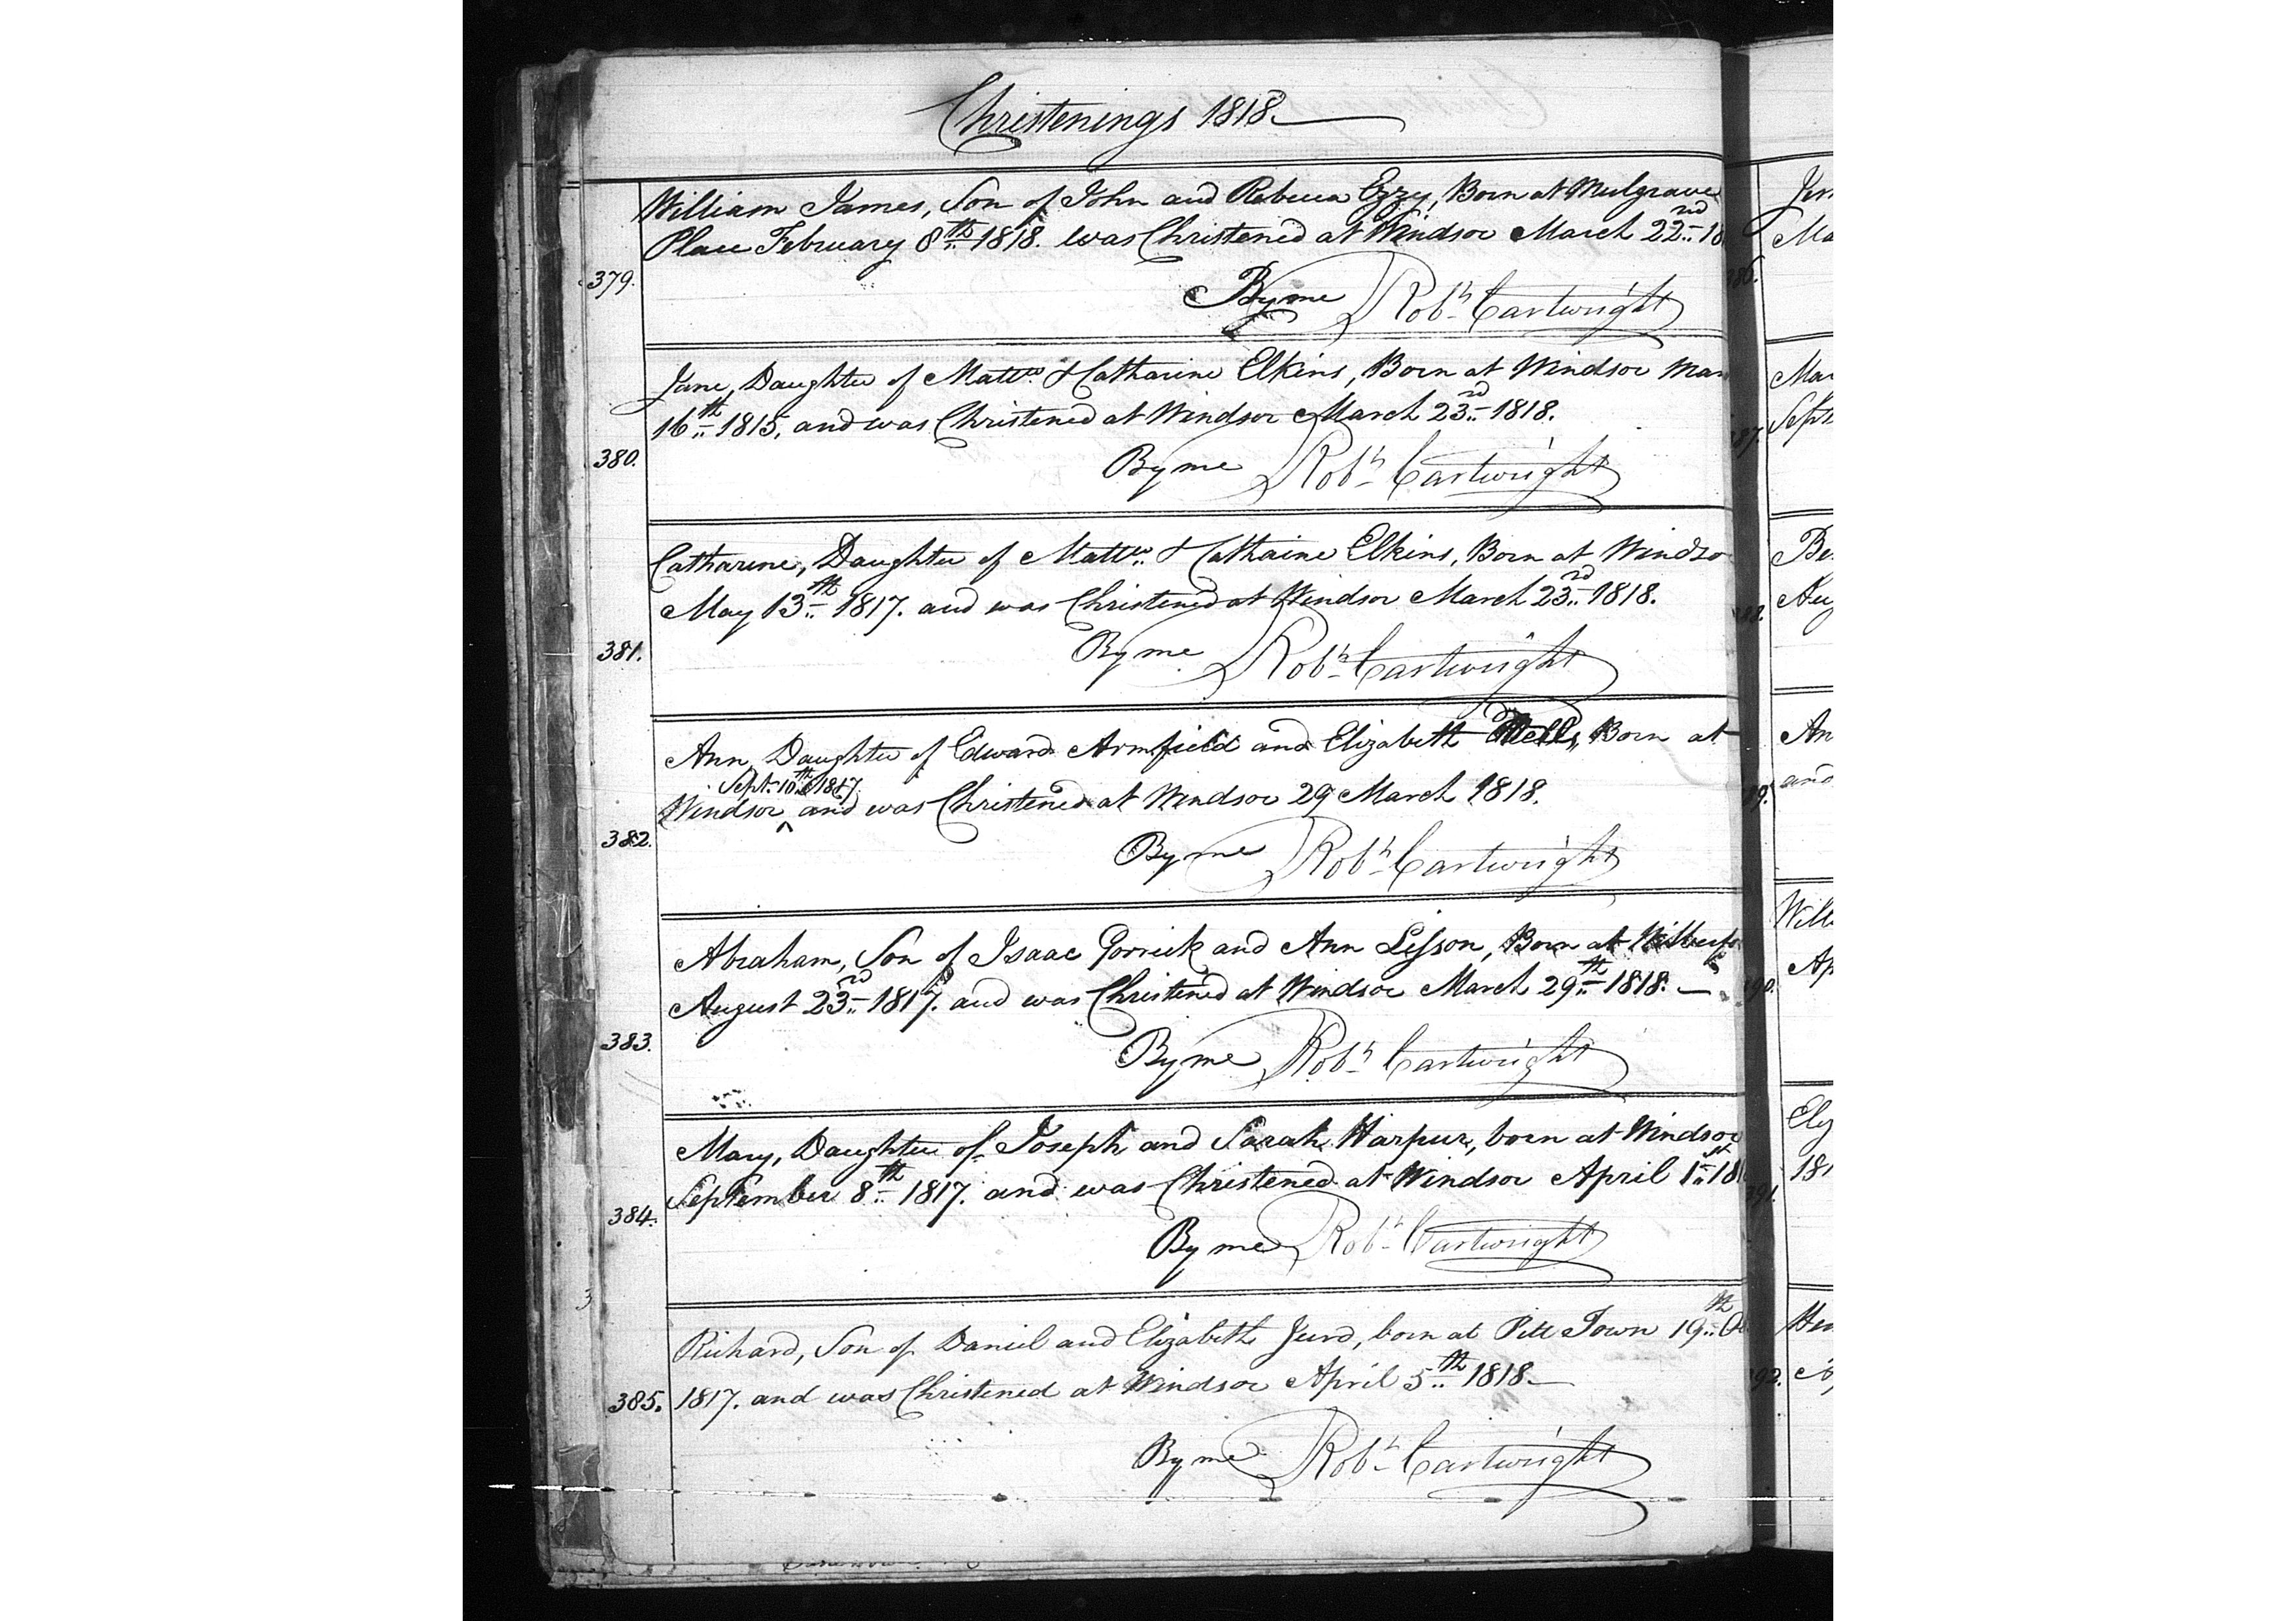 Christenings 1818.
William James, Son of John and Rebecca Ezzy, Born at Mulgrave
Place February 8th 1818. was Christened at Windsor March 22nd 18
379.
By me Robt Cartwright
Jane, Daughter of Mattw & Catharine Elkins, Born at Windsor Mar
16th 1815, and was Christened at Windsor March 23rd 1818.
380.
By me Robt Cartwright
Catharine, Daughter of Mattw & Cathaine Elkins, Born at Windso
May 13th 1817. and was Christened at Windsor March 23rd 1818.
381.
By me Robt Cartwright
Ann, Daughter of Edward Armfield and Elizabeth Born at
Sept. 10th 1817.
Windsor ^ and was Christened at Windsor 29 March 1818.
382.
By me Robt Cartwright
Abraham, Son of Isaac Gorrick and Ann Lisson, Born at Wilberfo
August 23rd 1817. and was Christened at Windsor March 29th 1818.
383.
By me Robt Cartwright
Mary, Daughter of Joseph and Sarah Harpur, born at Windsor
September 8th 1817. and was Christened at Windsor April 1st 181
384.
By me Robt Cartwright
Richard, Son of Daniel and Elizabeth Jurd, born at Pitt Town 19th O
1817. and was Christened at Windsor April 5th 1818.
385.
By me Robt Cartwright